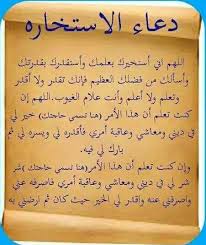 دعاء الاستخاره
اللهم اني أستخيرك بعلمك وأستقدرك بقدرتك
وأسألك من فضلك العظيم فإنك تقدر ولا أقدر
وتعلم ولا أعلم وأنت علام الغيوب.اللهم إن
كنت تعلم أن هذا الأمر(هنا تسمي حاجتك )خير لي
في ديني ومعاشي وعاقبة أمري فأقدره لي ويسره لي ثم
بارك لي فيه.
وإن كنت تعلم أن هذا الأمر(هنا تسمي حاجتك )شر
شر لي في ديني ومعاشي وعاقبة أمري فاصرفه عني
وأصرفني عنه وأقدر لي الخير حيث كان ثم ارضني به